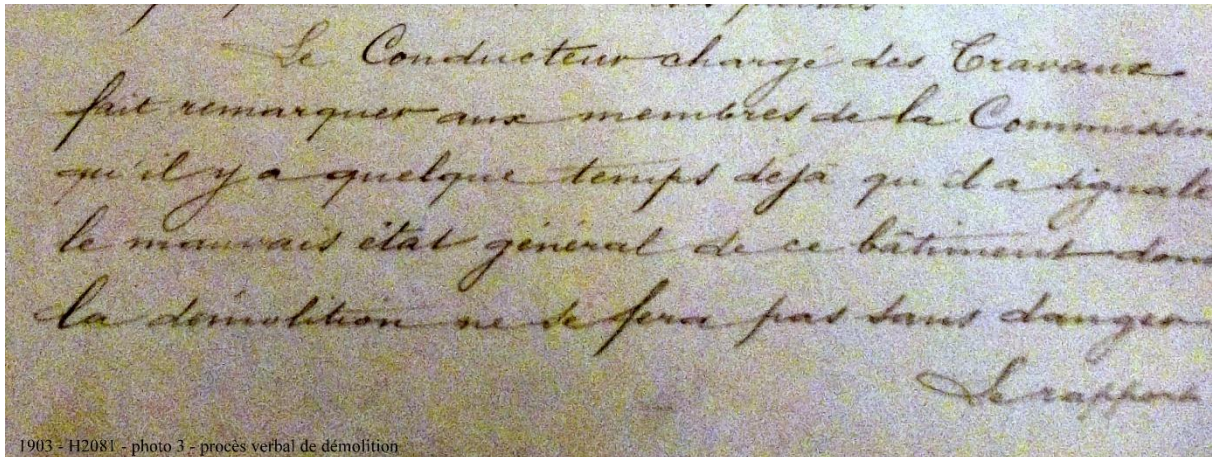 Le Conducteur chargé des Travaux
fait remarquer aux membres de la Commission
qu'il y a quelque temps déjà qu'il a signalé
le mauvais état général de ce bâtiment dont
la démolition ne se fera pas sans danger
Le rapport
1903 - H2081 - photo 3 - procès verbal de démolition